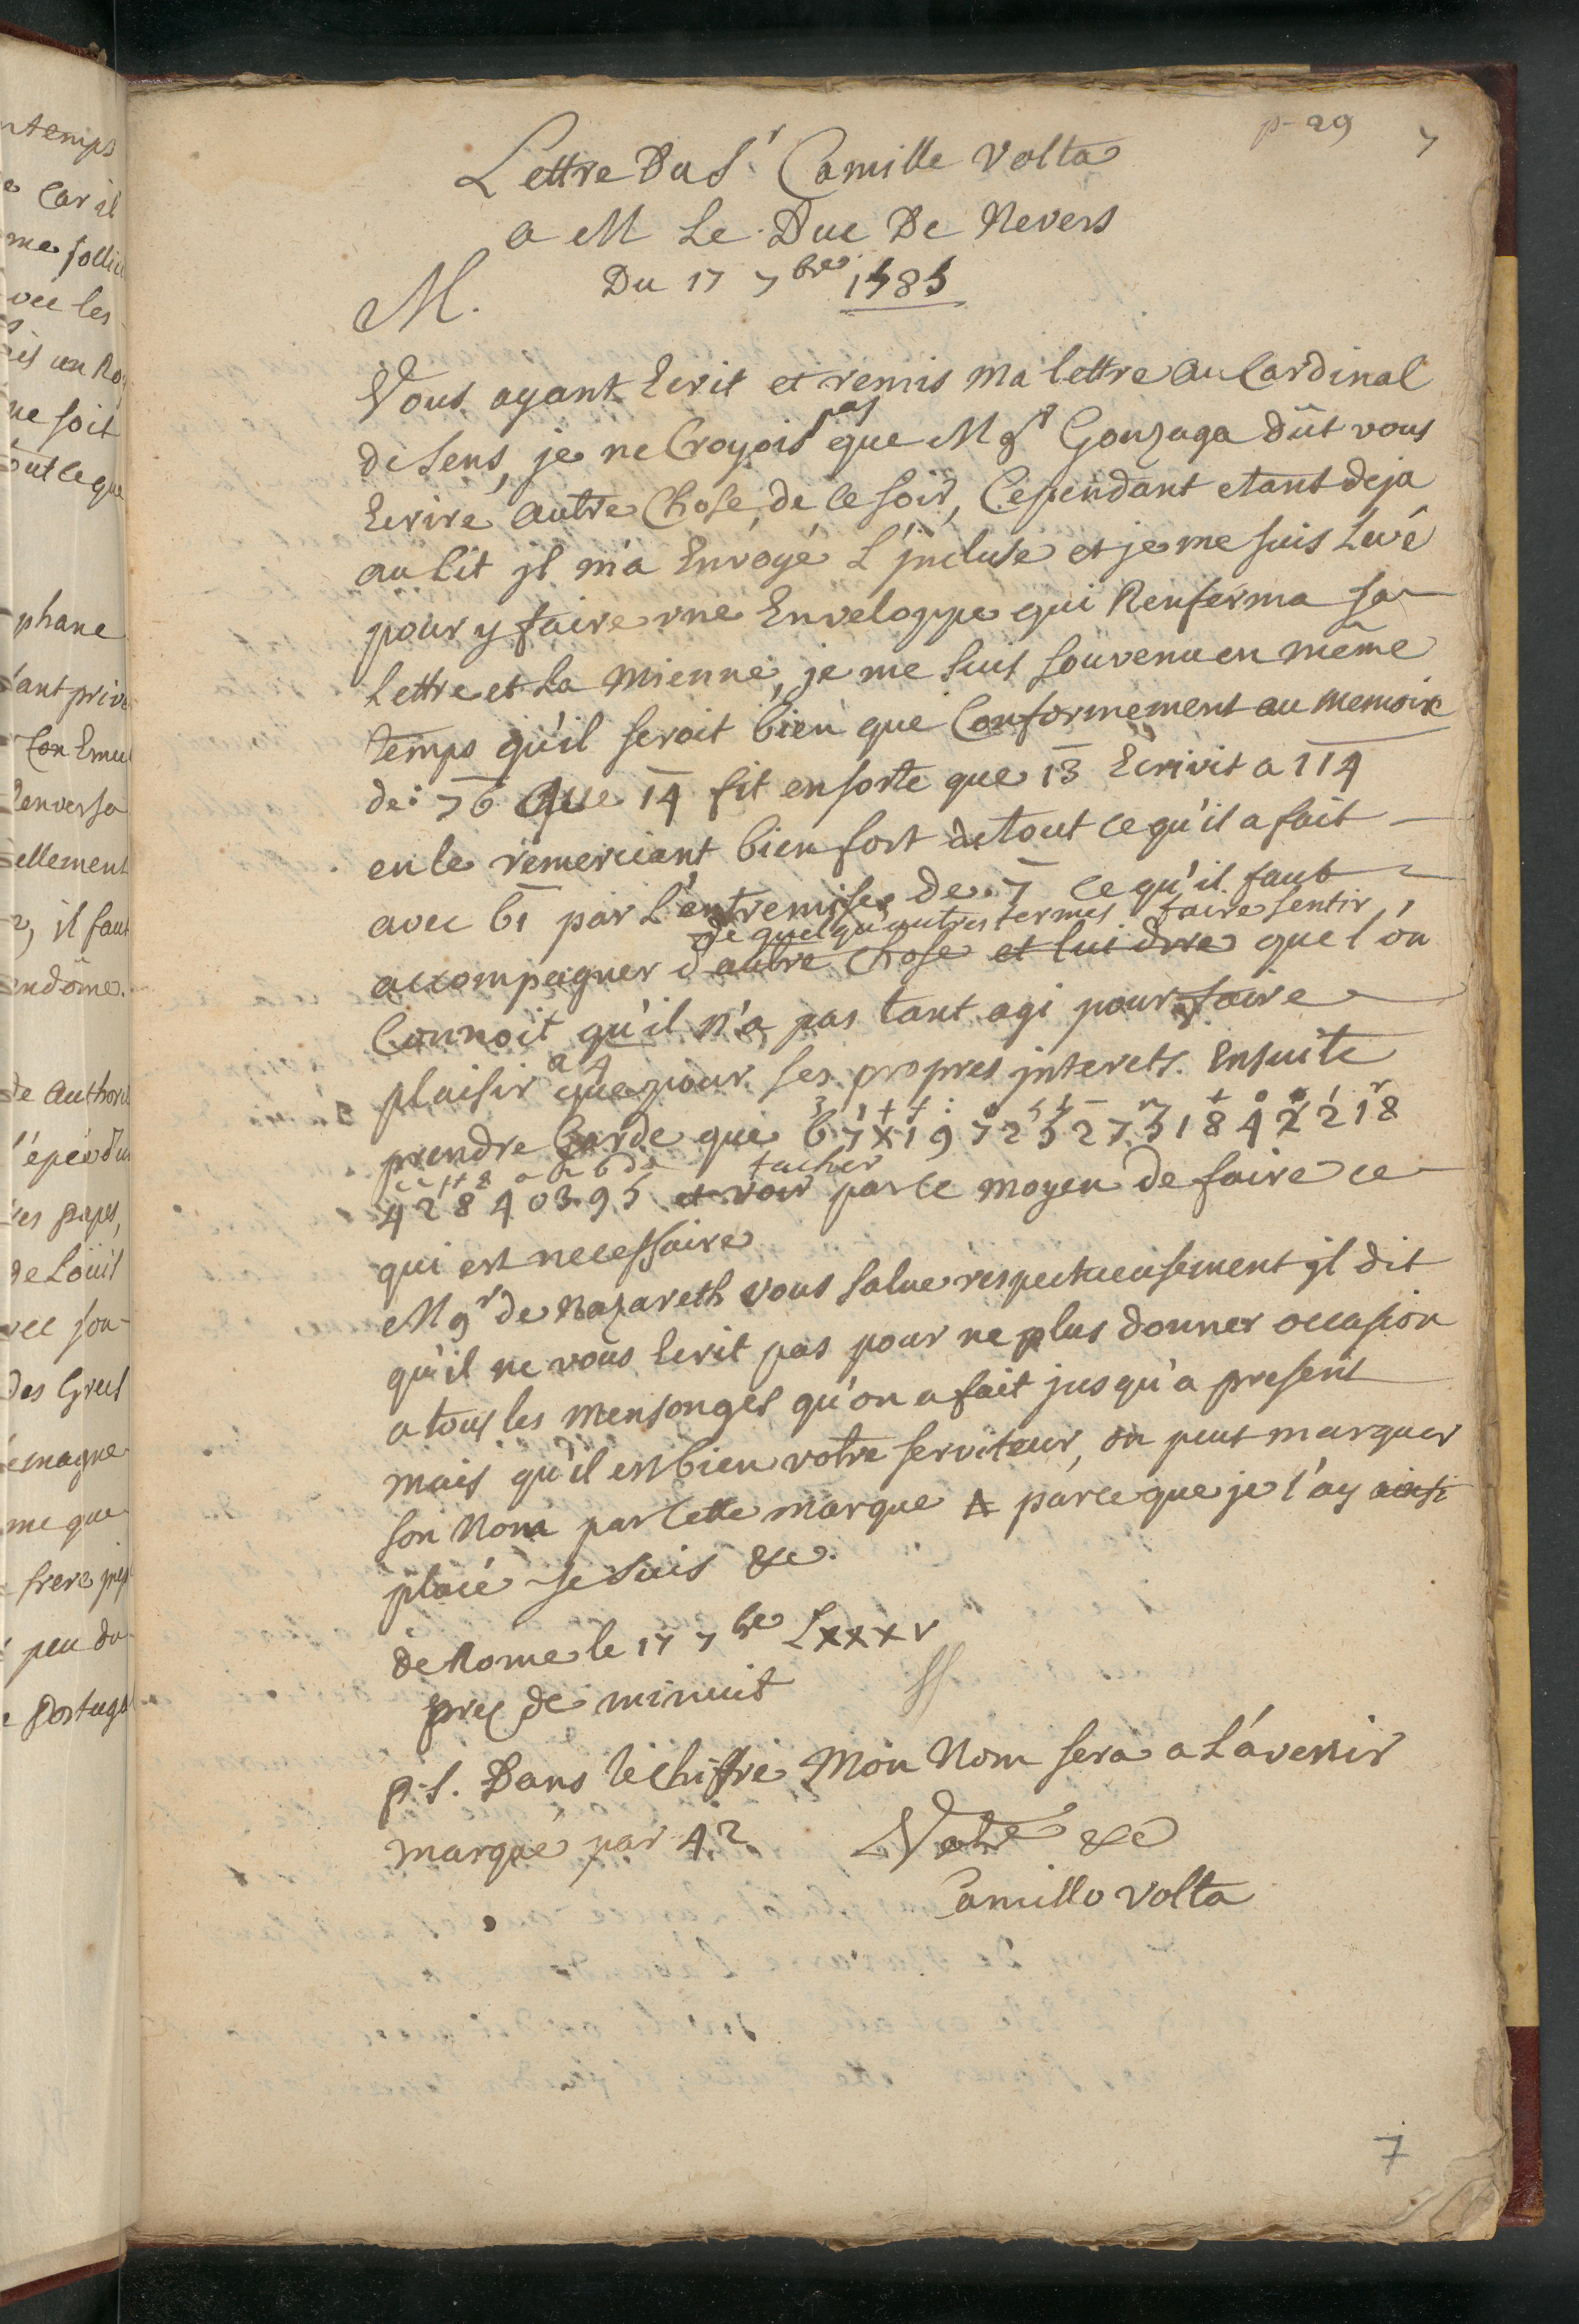 p-29 7
Lettre Du Sr Camille Volta
a M Le Duc De Nevers
Du 17 7bre 1585
M.
Vous ayant Ecrit et remis ma lettre au Cardinal
de Sens, je ne Croyois pas que Mgr Gonzaga dût vous
Ecrire autre Chose, de ce soir, Cependant etant deja
au lit jl m'a Envoyé L'jncluse et je me suis Levé
pour y faire vne Enveloppe qui Renferma sa
Lettre et la mienne, je me suis souvenu en même
temps qu'il seroit bien que Conformement au memoire
de: 76 que 14 fit ensorte que 13 Ecrivit a 114
en le remerciant bien fort de tout ce qu'il a fait
avec 61 par L'entremise de. 7 ce qu'il faut
de quelqu'autres termes faire sentir
accompagner d'autre chose et lui dire que l'on
Connoit qu'il n'a pas tant agi pour faire
plaisir a 4 que pour ses propres jnterets. Ensuite
prendre Garde que 67x197252751842218
428440395 et voir tacher par ce moyen de faire ce
qui est necessaire
Mgr de Nazareth vous salue respectueusement jl dit
qu'il ne vous Ecrit pas pour ne plus donner occasion
a tous les mensonges qu'on a fait jusqu'a present
mais qu'il est bien votre serviteur, on peut marquer
son Nom par Cette marque A parce que je l'ay ainsi
placé Je suis &c.
de Rome le 17 7bre Lxxxv
prez de minuit
p.s. Dans le chiffre Mon Nom sera a L'avenir
marqué par 42. Votre &c
Camillo Volta
7
ntemps
Car il
me sollici
vec les
ne soit
out ce que
phane
Con Emu
Renversa
ellement
il faut
endôme.
de Authori
des papes,
de Loüis
vec son
des Grecs
emagne
me que
frere
peu du
Portuga